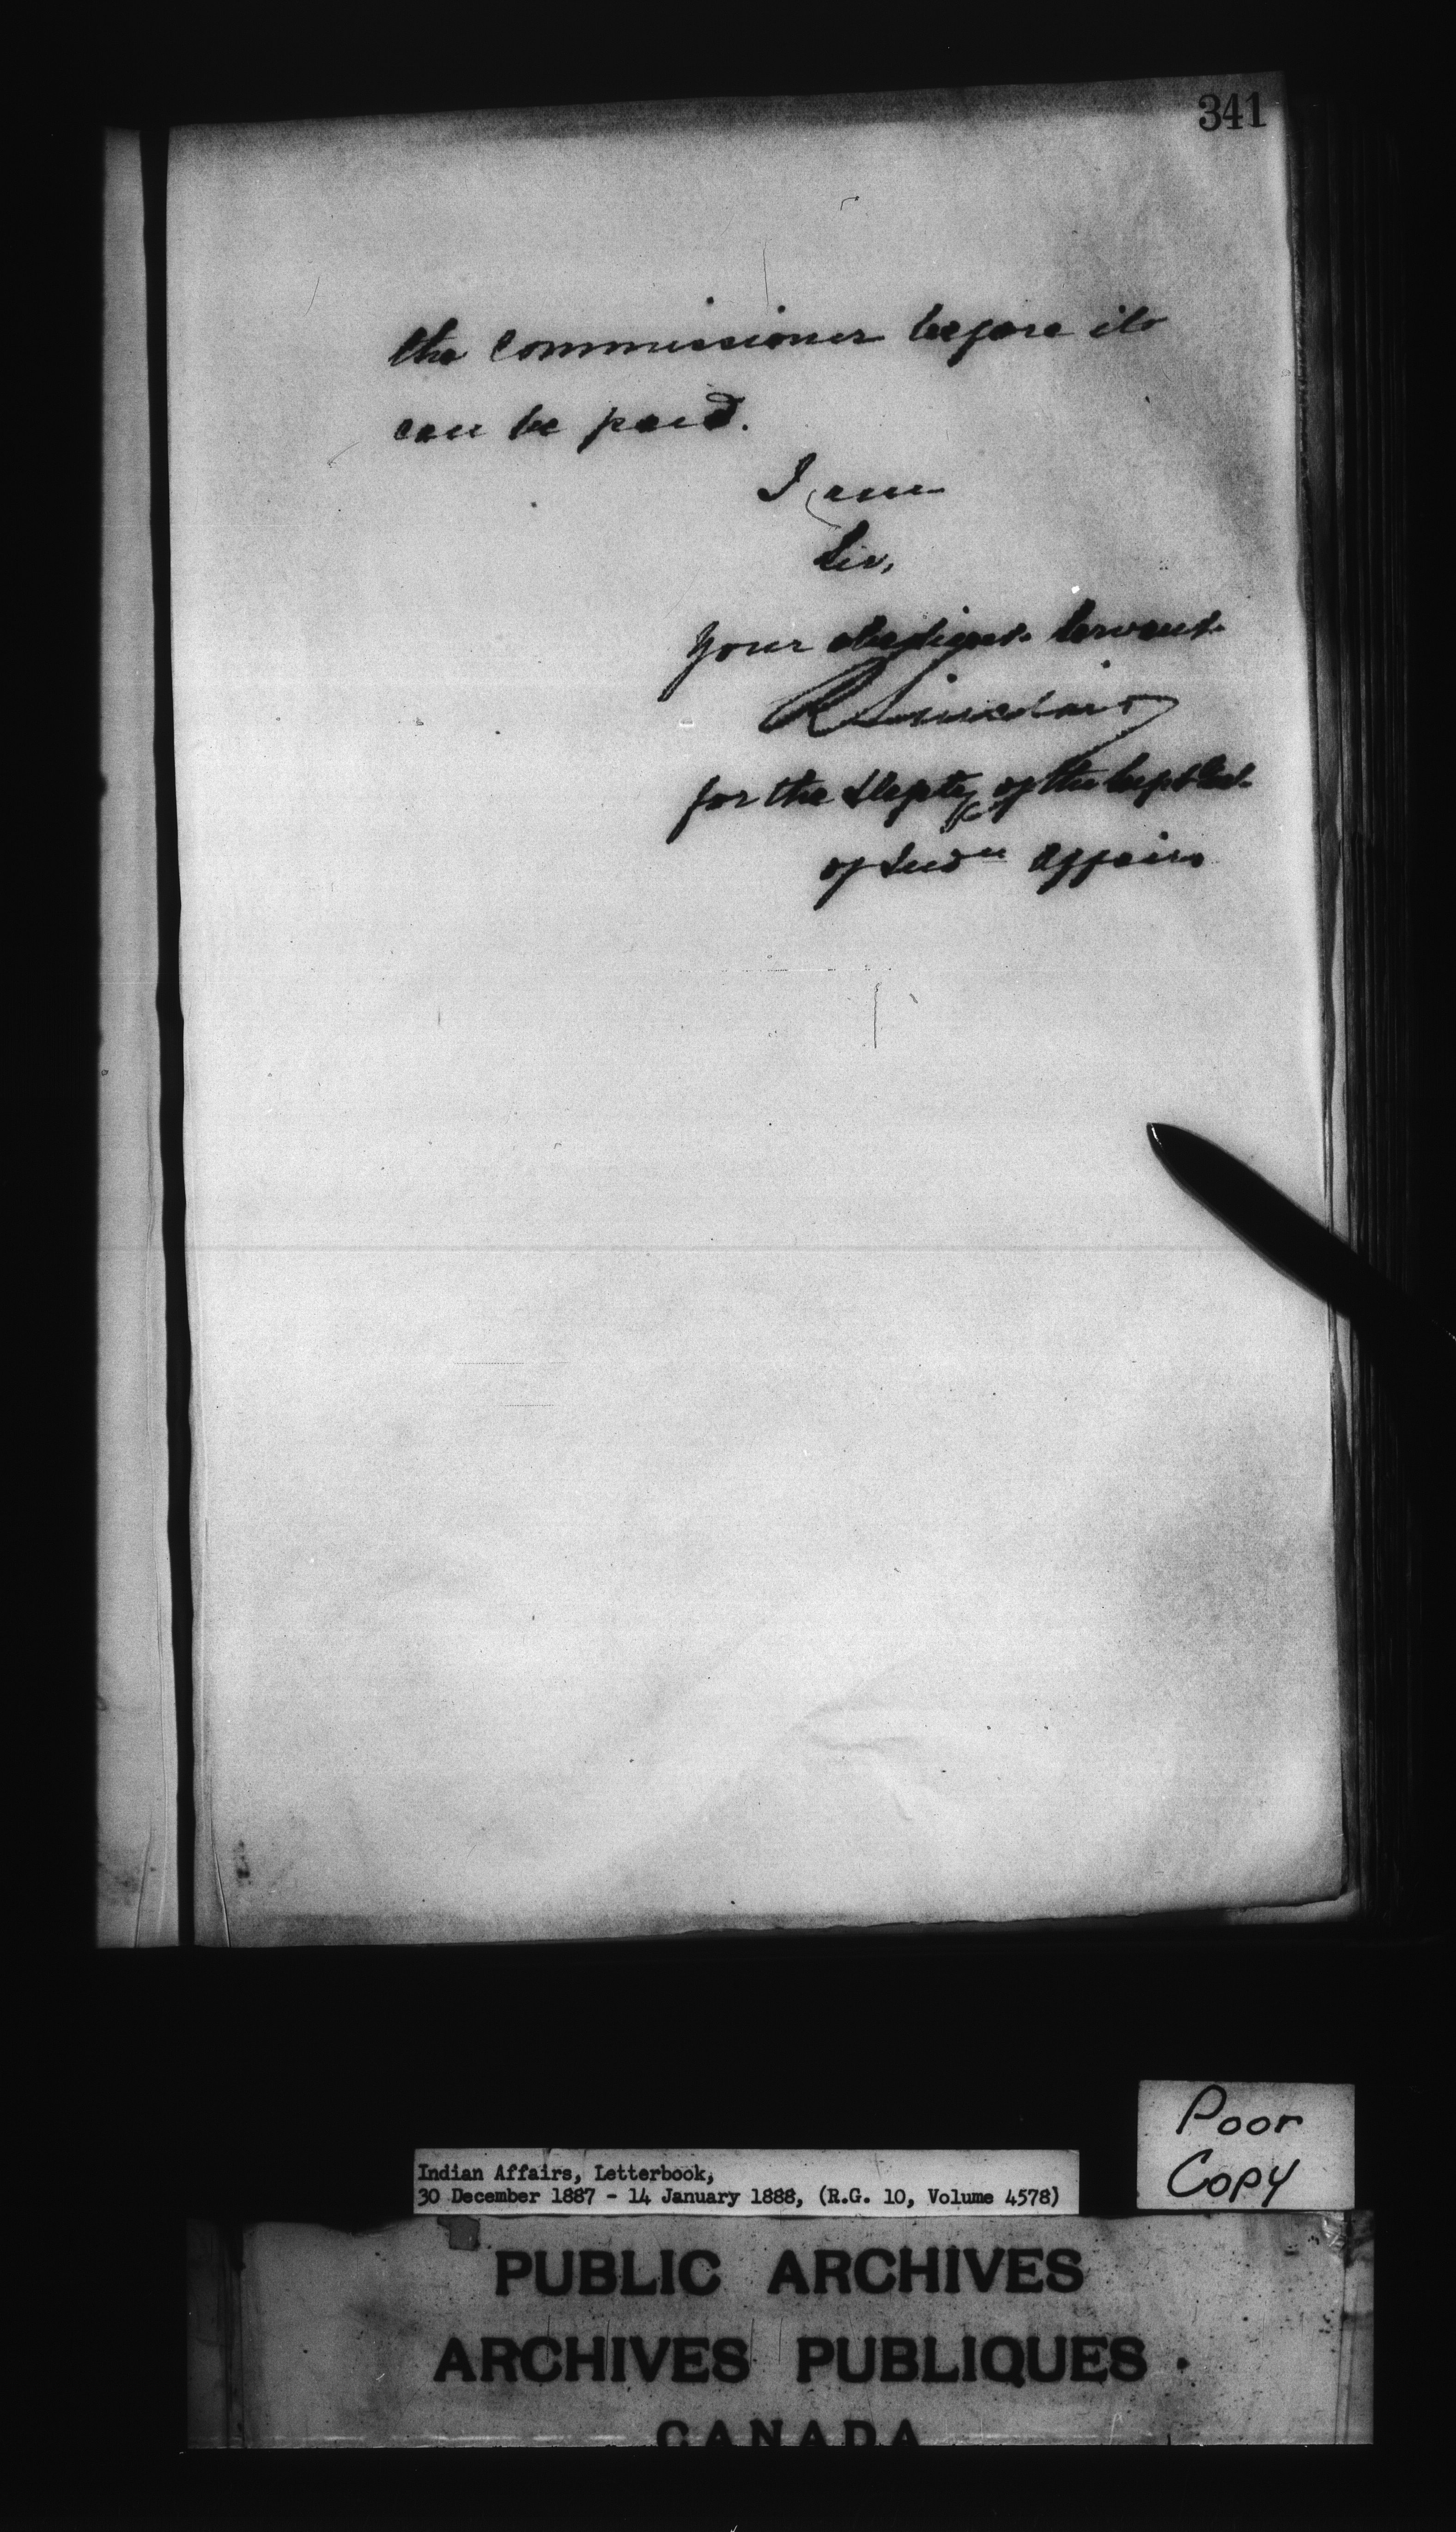 341
the Commissioner before it
can be paid.
I am
Sir,
Your obedient Servant
R Sinclair
for the Depty of the Supt Genl
of Indn Affairs
Poor
Copy
Indian Affairs, Letterbook,
30 December 1887 - 14 January 1888, (R.G. 10, Volume 4578)
PUBLIC ARCHIVES
ARCHIVES PUBLIQUES
CANADA